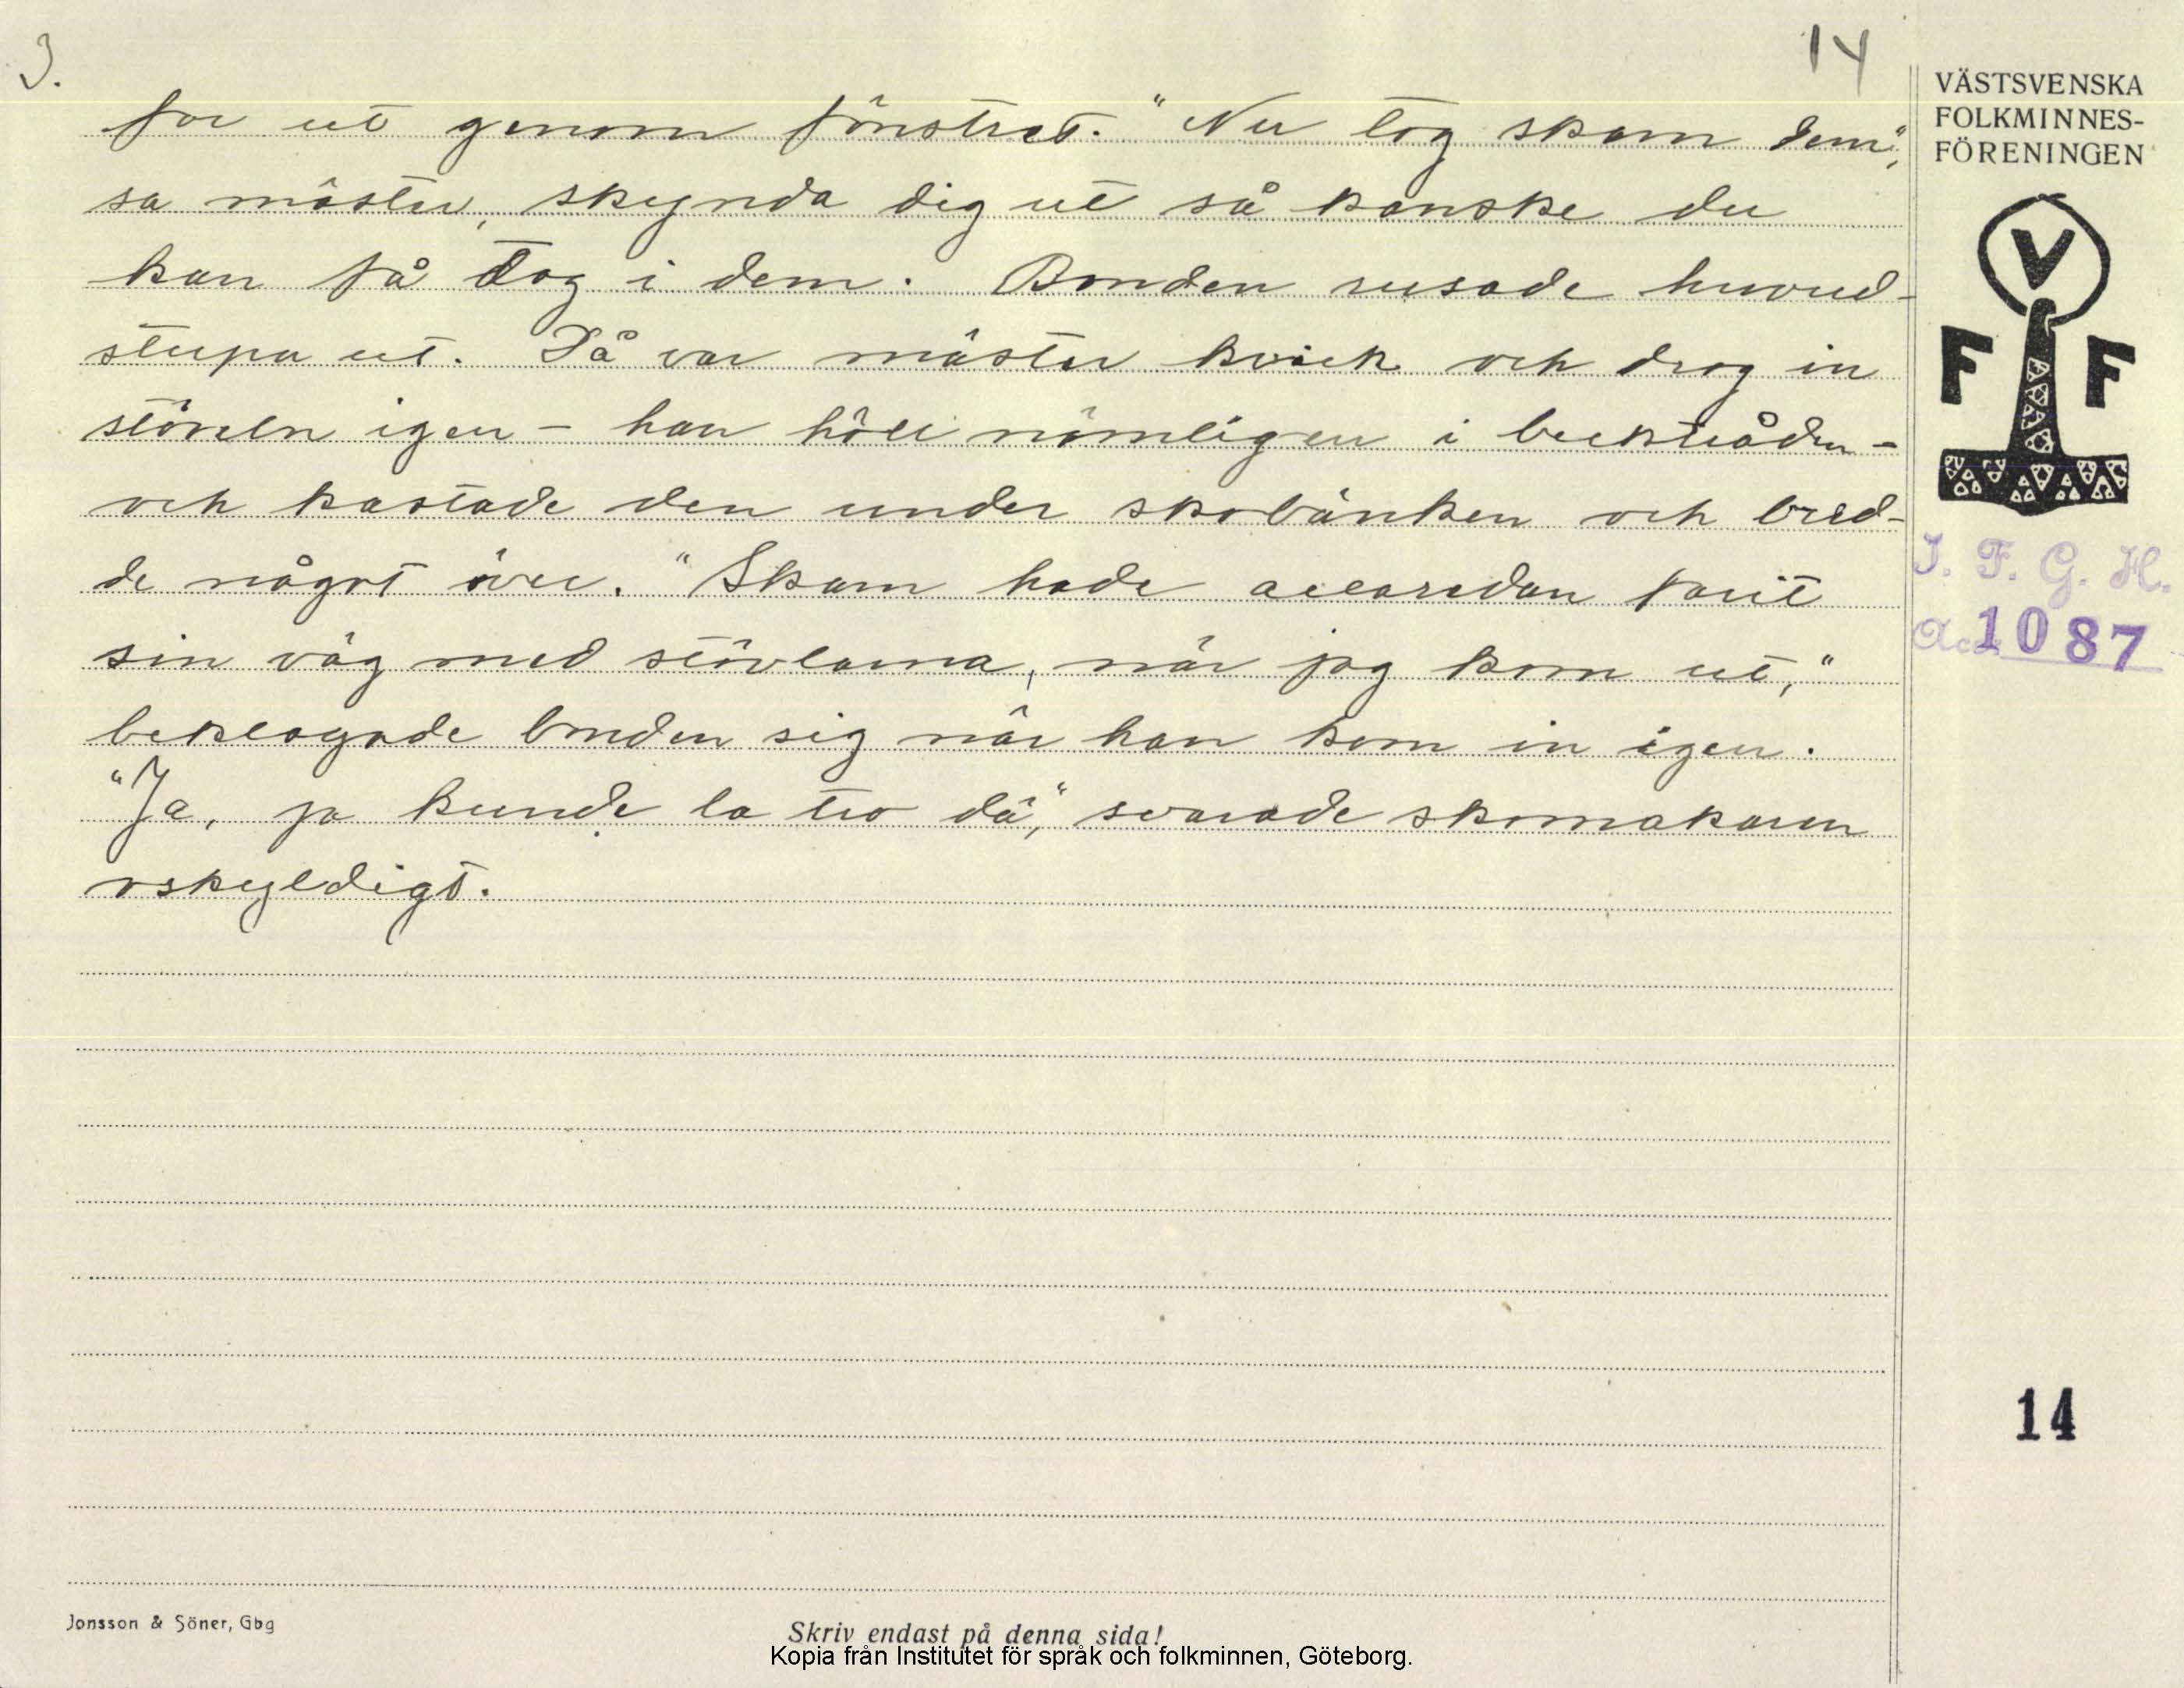 3.
14
for ut genom fönstret. "Nu tog skam dem",
sa mäster, skynda dig ut så kanske du
kan få tag i dem. Bonden rusade huvud-
stupa ut. Då var mäster kvick och drog in
stöveln igen - han höll nämligen i becktråden -
och kastade den under skobänken och bred-
de något över. "Skam hade allaredan farit
sin väg med stövlarna, när jag kom ut,"
beklagade bonden sig när han kom in igen.
"Ja, ja kunde la tro dä," svarade skomakaren
oskyldigt.
VÄSTSVENSKA
FOLKMINNES-
FÖRENINGEN
V
F F
I. F. G. H.
Acc. 1087
14
Jonsson & Söner, Gbg
Skriv endast på denna sida!
Kopia från Institutet för språk och folkminnen, Göteborg.